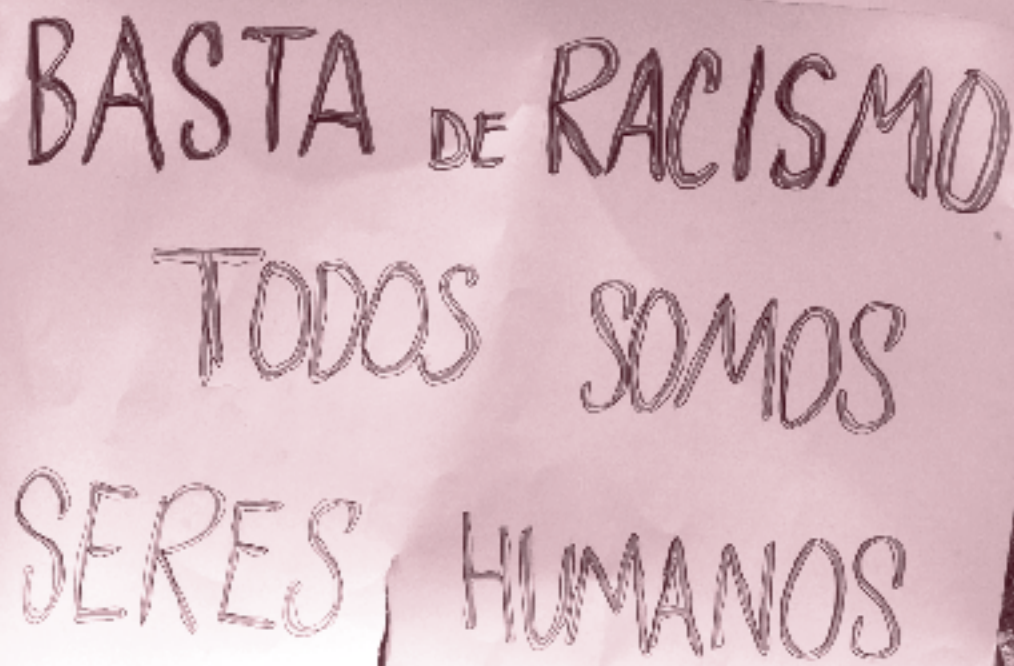 BASTA DE RACISMO
TODOS SOMOS
SERES HUMANOS